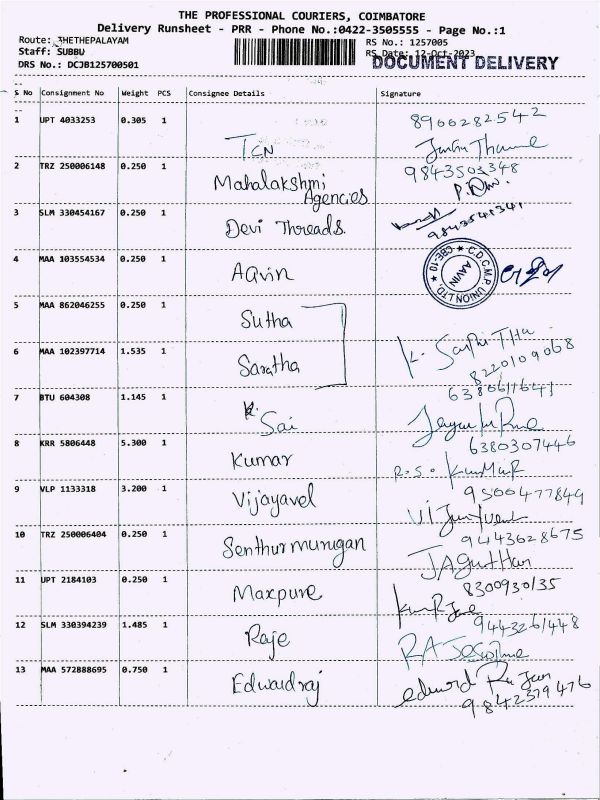 THE PROFESSIONAL COURIERS, COIMBATORE
Delivery Runsheet - PRR - Phone No.:0422-3505555 - Page No.:1
Route: THETHEPALAYAM
RS No.: 1257005
Staff: SUBBU
RS Date: 12-Oct-2023
DRS No.: DCJB125700501
DOCUMENT DELIVERY
S No Consignment No Weight PCS Consignee Details Signature
1 UPT 4033253 0.305 1 TCN 8900282542
2 TRZ 250006148 0.250 1 Mahalakshmi Agencies 9843503348
3 SLM 330454167 0.250 1 Devi Threads 9843541341
4 MAA 103554534 0.250 1 Aavin C.D.C.M.P. UNION LTD. CBE-10 AAVIN
5 MAA 862046255 0.250 1 Sutha
6 MAA 102397714 1.535 1 Saratha 8220109068
6380611641
7 BTU 604308 1.145 1 K. Sai
6380307446
8 KRR 5806448 5.300 1 Kumar R.S. KumMaR
9500477849
9 VLP 1133318 3.200 1 Vijayavel
9443628675
10 TRZ 250006404 0.250 1 Senthurmurugan
8300930135
11 UPT 2184103 0.250 1 Maxpure
9443261448
12 SLM 330394239 1.485 1 Raje
13 MAA 572888695 0.750 1 Edwardraj edward
9842379476